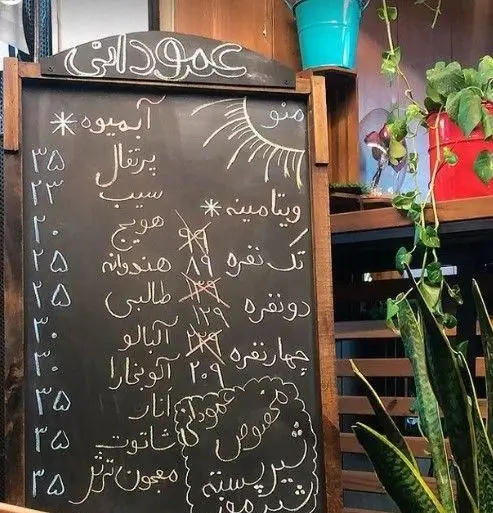 عمودانی
منو
ویتامینه *
تک نفره ۸۹
دونفره ۱۲۹
چهارنفره ۲۰۹
مخصوص عمودانی
شیر پسته
شیر موز
آبمیوه *
پرتقال ۳۵
سیب ۲۳
هویج ۲۰
هندوانه ۲۵
طالبی ۲۵
آلبالو ۳۰
آلوبخارا ۳۰
انار ۳۵
شاتوت ۳۵
معجون ۳۵